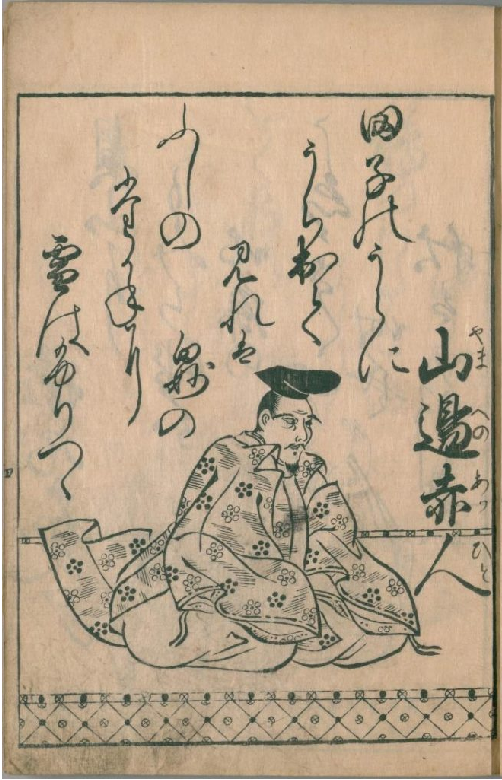 山邊赤人
やまへのあかひと
田子のうらに
うち出て
見れは
白妙の
ふしの
たかねに
雪はふりつゝ